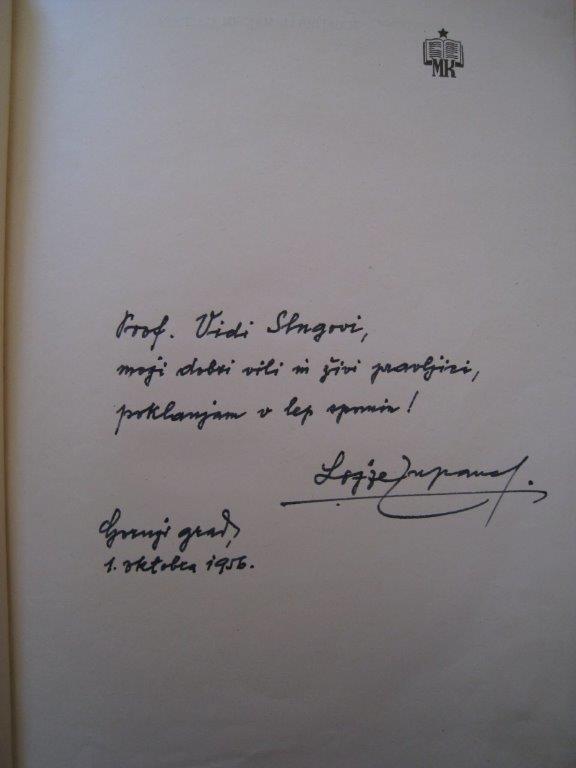 MK
Prof. Vidi Slugovi,
moji dobri vili in živi pravljici,
poklanjam v lep spomin!
Lojze Zupanc.
Gornji grad,
1. oktobra 1956.